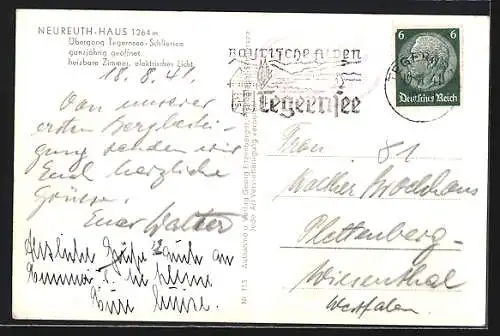 NEUREUTH-HAUS 1264 m
Übergang Tegernsee-Schliersee
ganzjährig geöffnet
heizbare Zimmer, elektrisches Licht.
18.8.41.
Von unserer
ersten Bergbestei-
gung senden wir
Euch herzliche
Grüsse.
Euer Walter
Herzliche Grüße auch an
Eure Luise.
Bayrische Alpen
Tegernsee
TEGERNSEE
6 6
Deutsches Reich
Frau
81
Walther Brockhaus
Plettenberg-
Wiesenthal
Westfalen.
Nr. 153 Aufnahme u. Verlag Georg
Jede Art Vervielfältigung